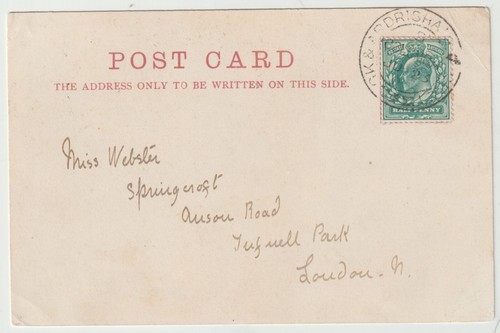 POST CARD
THE ADDRESS ONLY TO BE WRITTEN ON THIS SIDE.
K & ARDRISHA
HALF PENNY
Miss Webster
Springcroft
Anson Road
Tufnell Park
London. N.